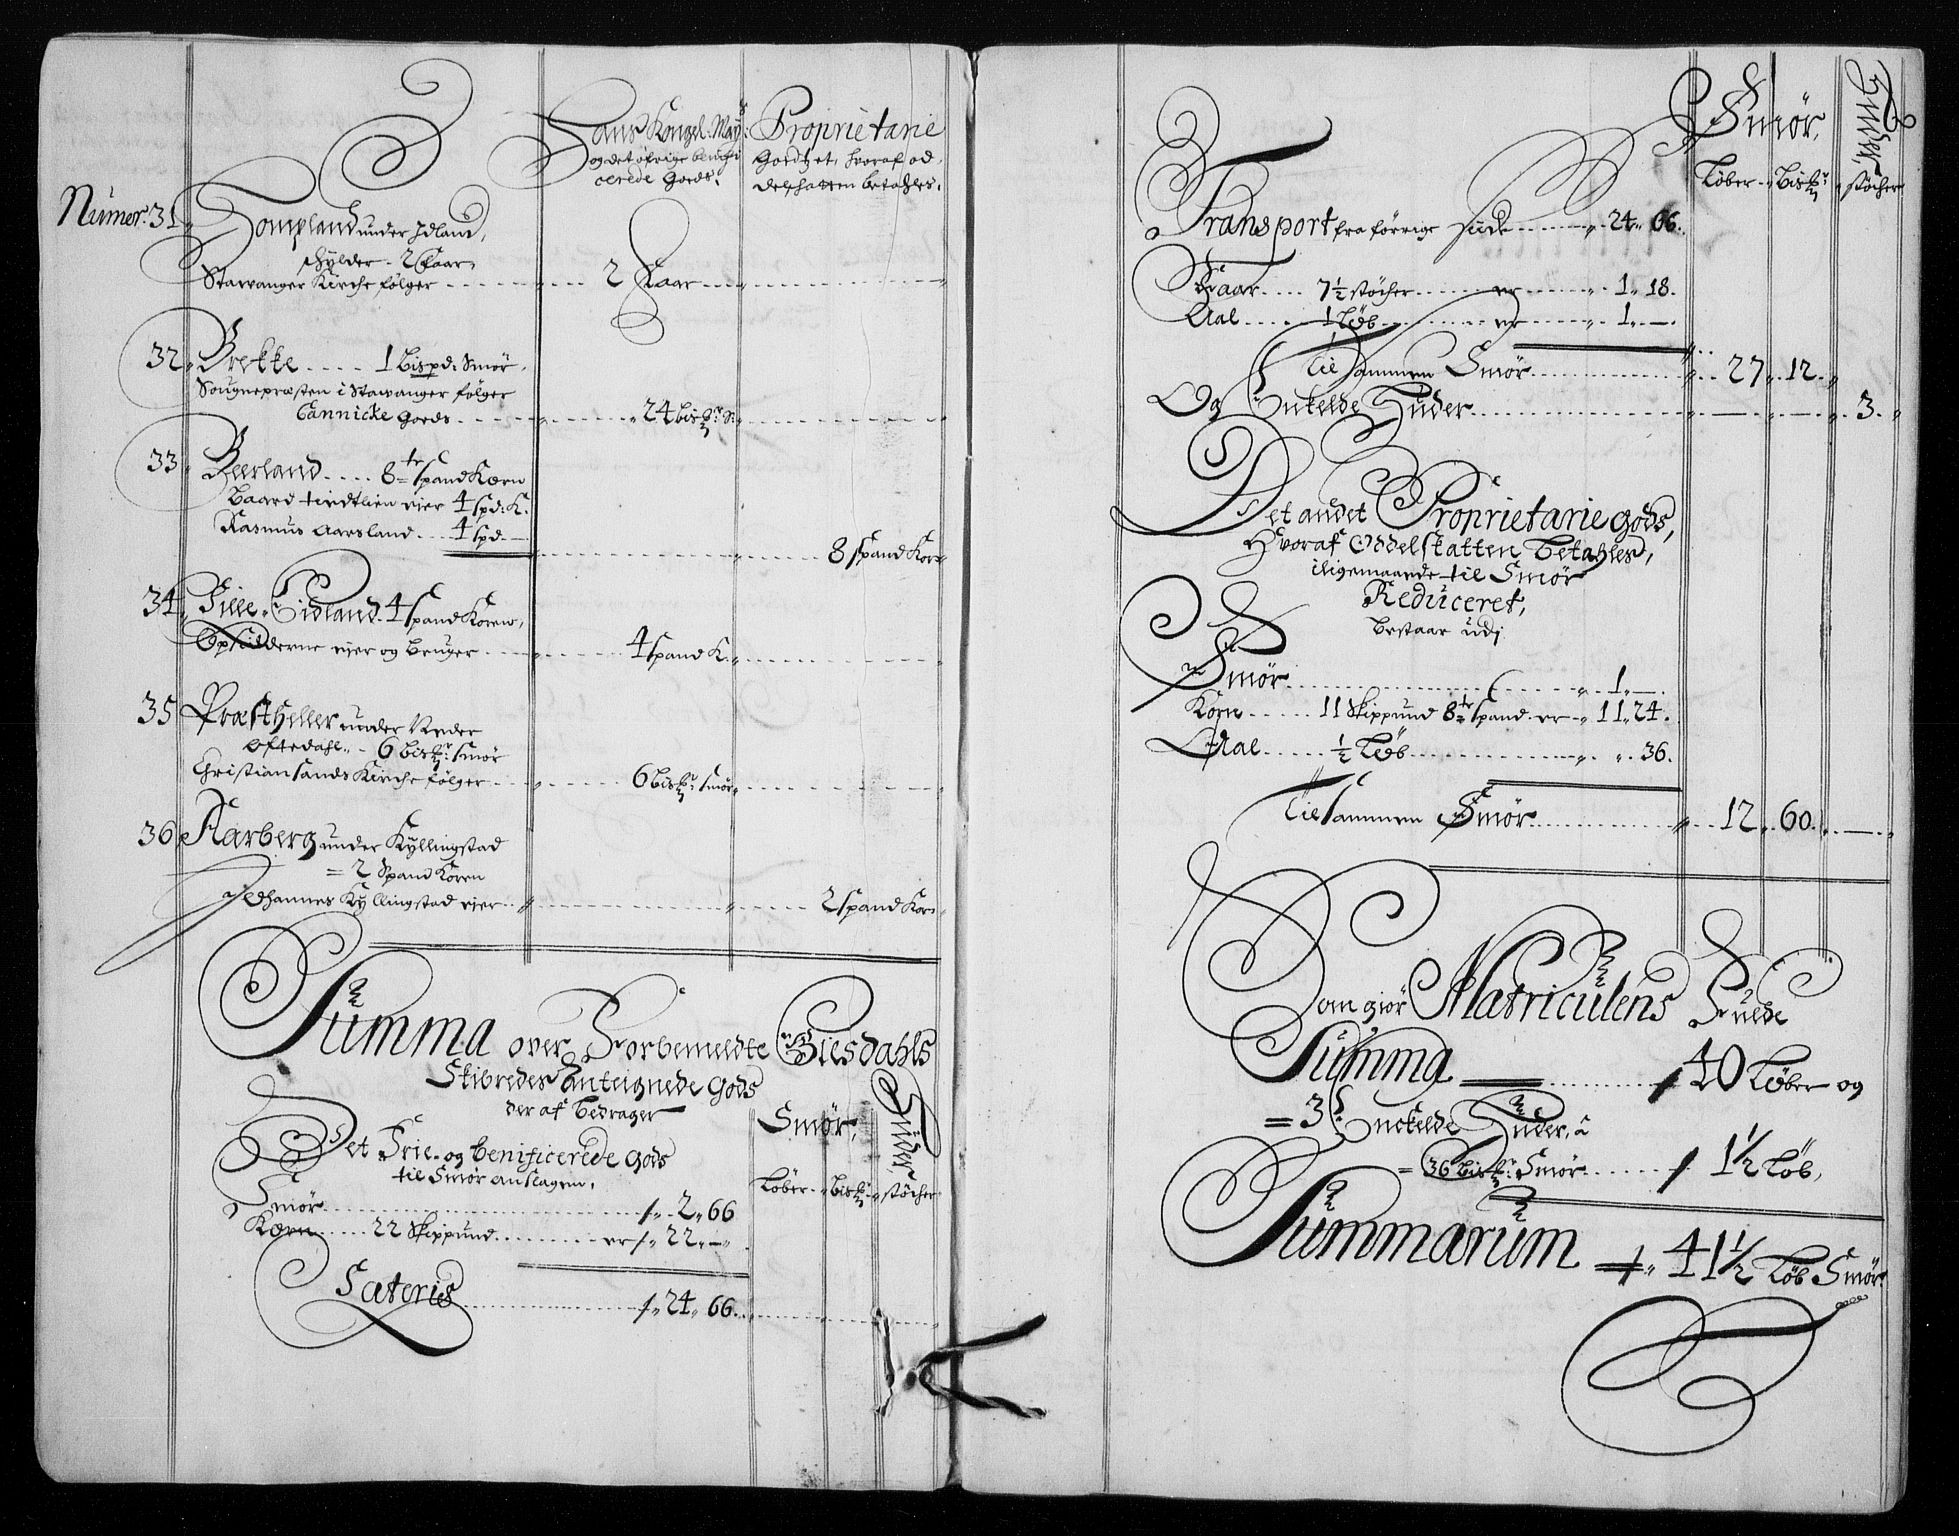 Hans Kongel: May:
og det öfrige benifi
cerede Goeds.
Proprietarie
Goedtzet, hvoraf od,
delschatten betahles.
Numer. 31 Hompland under Idland,
schylder - 2 Faar
Stawanger Kirche følger 2 Faar
32 Brekke 1 Bispd: Smör,
Sougnepræsten i Stawanger følger
Cannicke Goeds 24 bisk:r S:
33 Beerland 8te spand Kærn
Baard tindtlien eier 4 spd: K.
Rasmus Aarsland 4 spd
8 spand Korn
34 Lille Eidland 4 spand Koren,
Opsidderne eier og Bruger 4 spand K.
35 Præstheller under Neder
Oftedahl 6 bisk:r smör
Christiansands Kirche følger 6 bisk:r smör
36 Aarberg under Kyllingstad
= 2 Spand Koren
Johannes Kyllingstad eier 2 spand Korn
Summa over Forbemeldte Giesdahls
Skibredes Anteignede Gods
der af bedrager
Smör,
Huder
Det Frie- og benificerede Gods
til Smör anslagen,
Løber bisk:r støcher
Smör 2 66
Kærn 22 Skippund er 22 -
Lateris 24 66.
Smör,
Huder,
Løber bisk:r støcher
Transport fra förrige side 24 66.
Faar 7½ støcher er 1 18.
Aal 1 Løb er 1 -
Tilsammen Smör 27 12
Og Enkelde Huder - - 3.
Det andet Proprietarie gods,
Hvoraf Oddelskatten betahles,
iligemaande til Smör
Reduceret,
bestaar udj
Smör 1 -
Korn 11 Skippund 8te spand er 11 24.
Aal ½ Løb 36.
Tilsammen Smör 12 60. -
Som giör Matriculens Fulde
Summa 40 Løber og
= 3 Enckelde Huder, a
= 36 bisk:r Smör 1½ Løb,
Summarum 41½ Løb Smör